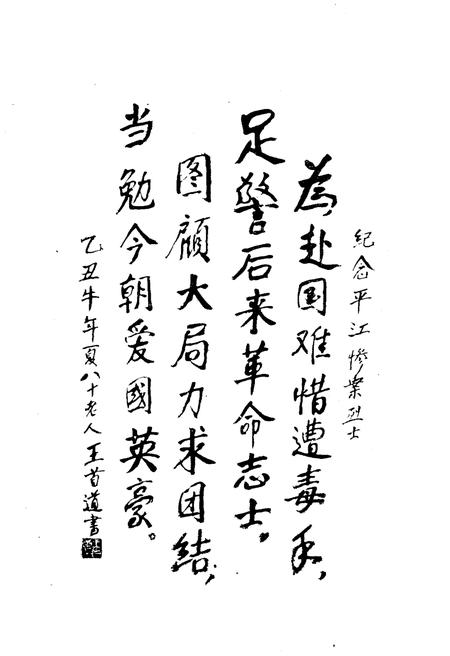 纪念平江惨案烈士
為赴国难惜遭毒手，
足警后来革命志士。
图顾大局力求团结，
当勉今朝爱國英豪。
乙丑牛年夏八十老人王首道書